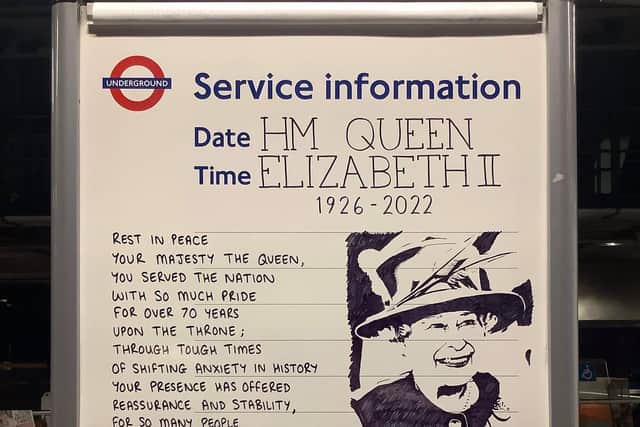 UNDERGROUND
Service information
Date HM QUEEN
Time ELIZABETH II
1926-2022
REST IN PEACE
YOUR MAJESTY THE QUEEN,
YOU SERVED THE NATION
WITH SO MUCH PRIDE
FOR OVER 70 YEARS
UPON THE THRONE;
THROUGH TOUGH TIMES
OF SHIFTING ANXIETY IN HISTORY
YOUR PRESENCE HAS OFFERED
REASSURANCE AND STABILITY,
FOR SO MANY PEOPLE